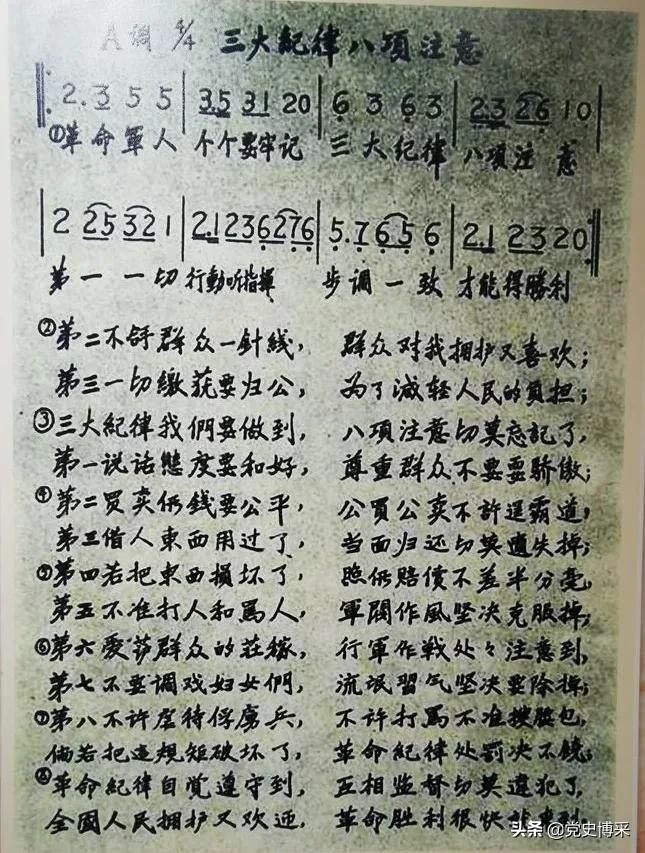 A调 4/4 三大紀律八項注意
2. 3 5 5 | 3.5 31 20 | 6 3 6 3 | 23 26 10
①革命軍人 个个要牢记 三大纪律 八項注意
2 25 32 1 | 2.1 23 6 276 | 5. 7 65 6 | 2.1 23 20
第一一切 行動听指揮 步调一致 才能得勝利
②第二不 群众一針线， 群众对我拥护又喜欢；
第三一切缴获要归公， 为了減轻人民的負担；
③三大紀律我們要做到， 八項注意切莫忘記了，
第一说话態度要和好， 尊重群众不要耍驕傲；
④第二買卖 錢要公平， 公買公卖不許逞霸道，
第三借人東西用过了， 当面归还切莫遺失掉；
⑤第四若把東西損坏了， 照 賠償不差半分毫，
第五不准打人和罵人， 軍閥作風坚决克服掉；
⑥第六愛 群众的莊稼， 行軍作戦处々注意到，
第七不要调戏妇女們， 流氓習气坚决要除掉；
⑦第八不许虐待俘虜兵， 不许打罵不准搜腰包，
倘若把 规矩破坏了， 革命紀律处罰决不饒；
⑧革命紀律自覚遵守到， 互相监督切莫違犯了，
全國人民拥护又欢迎， 革命胜利很快
头条 @党史博采